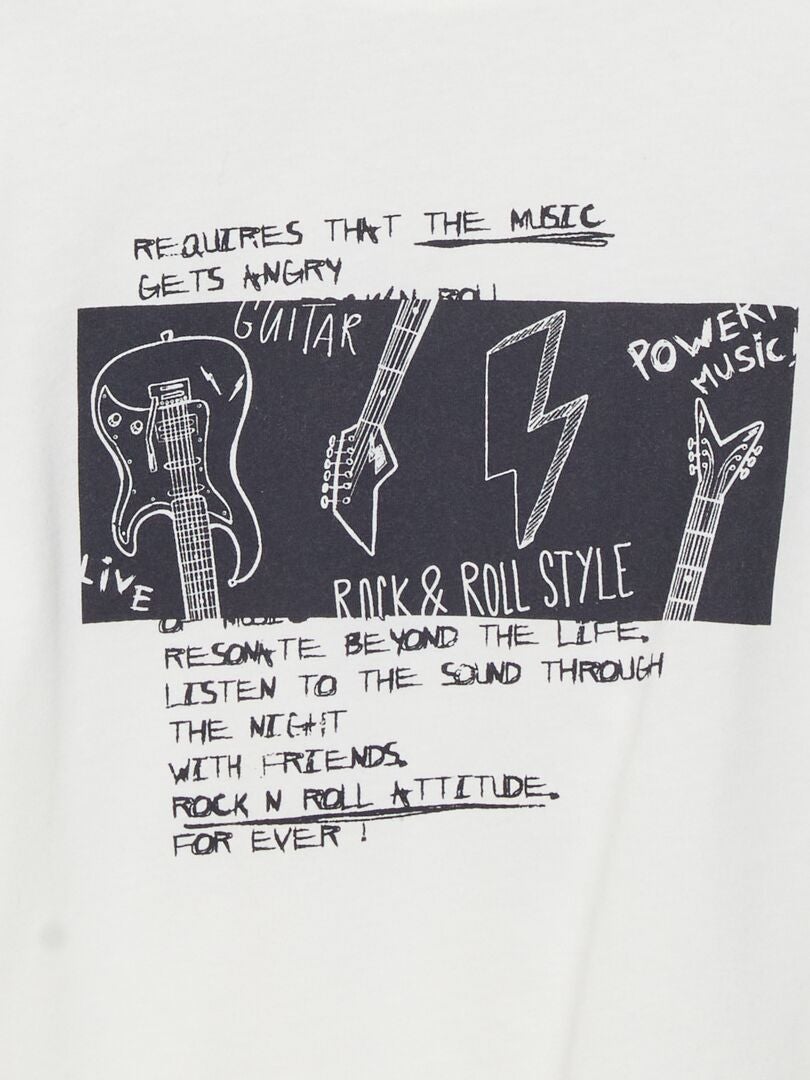 REQUIRES THAT THE MUSIC
GETS ANGRY
ROLL
GUITAR
POWER
MUSIC
LIVE
ROCK & ROLL STYLE
OF MUSIC
RESONATE BEYOND THE LIFE.
LISTEN TO THE SOUND THROUGH
THE NIGHT
WITH FRIENDS.
ROCK N ROLL ATTITUDE.
FOR EVER !